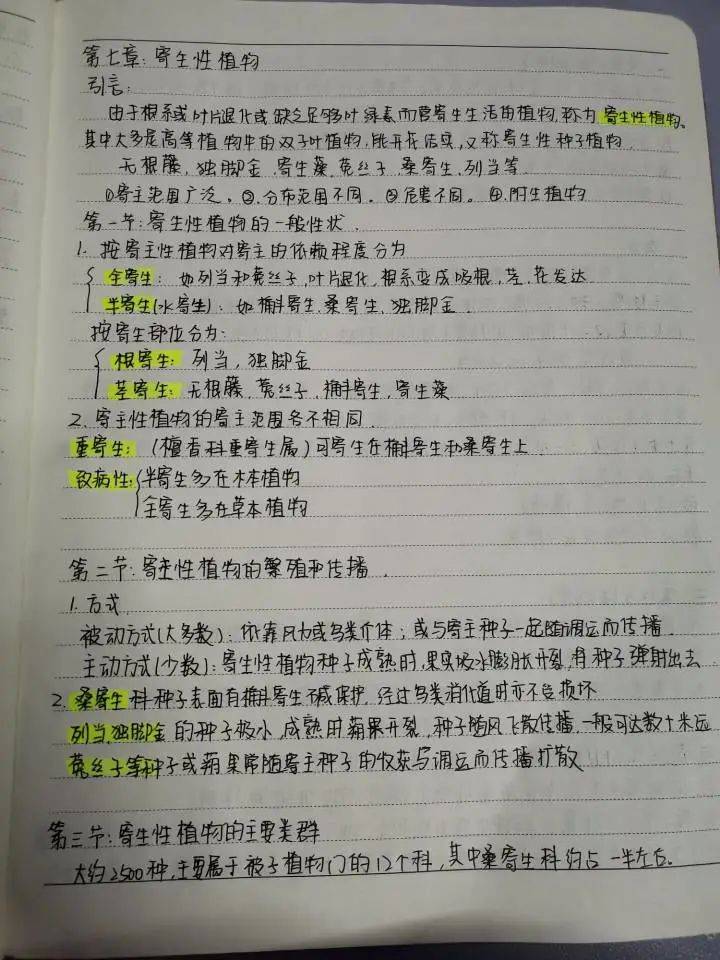 第七章：寄生性植物
引言：
由于根系或叶片退化或缺乏足够叶绿素而营寄生生活的植物，称为寄生性植物。
其中大多是高等植物中的双子叶植物，能开花结实，又称寄生性种子植物
无根藤，独脚金、寄生藻、菟丝子、桑寄生、列当等
①寄主范围广泛。②.分布范围不同。③危害不同。④.附生植物
第一节：寄生性植物的一般性状
1. 按寄主性植物对寄主的依赖程度分为
全寄生：如列当和菟丝子，叶片退化，根系变成吸根，茎、花发达
半寄生(水寄生)：如槲寄生、桑寄生、独脚金
按寄生部位分为：
根寄生：列当，独脚金
茎寄生：无根藤、菟丝子，槲寄生，寄生藻
2. 寄主性植物的寄主范围各不相同
重寄生：(檀香科重寄生属)可寄生在槲寄生和桑寄生上
致病性：半寄生多在木本植物
全寄生多在草本植物
第二节：寄生性植物的繁殖和传播
1. 方式
被动方式(大多数)：依靠风力或鸟类介体；或与寄主种子一起随调运而传播
主动方式(少数)：寄生性植物种子成熟时，果实吸水膨胀开裂，将种子弹射出去
2. 桑寄生科种子表面有槲寄生碱保护，经过鸟类消化道时亦不受损坏
列当、独脚金的种子极小，成熟时蒴果开裂，种子随风飞散传播，一般可达数十米远
菟丝子等种子或蒴果常随寄主种子的收获与调运而传播扩散
第三节：寄生性植物的主要类群
大约2500种，主要属于被子植物门的12个科，其中桑寄生科约占一半左右。